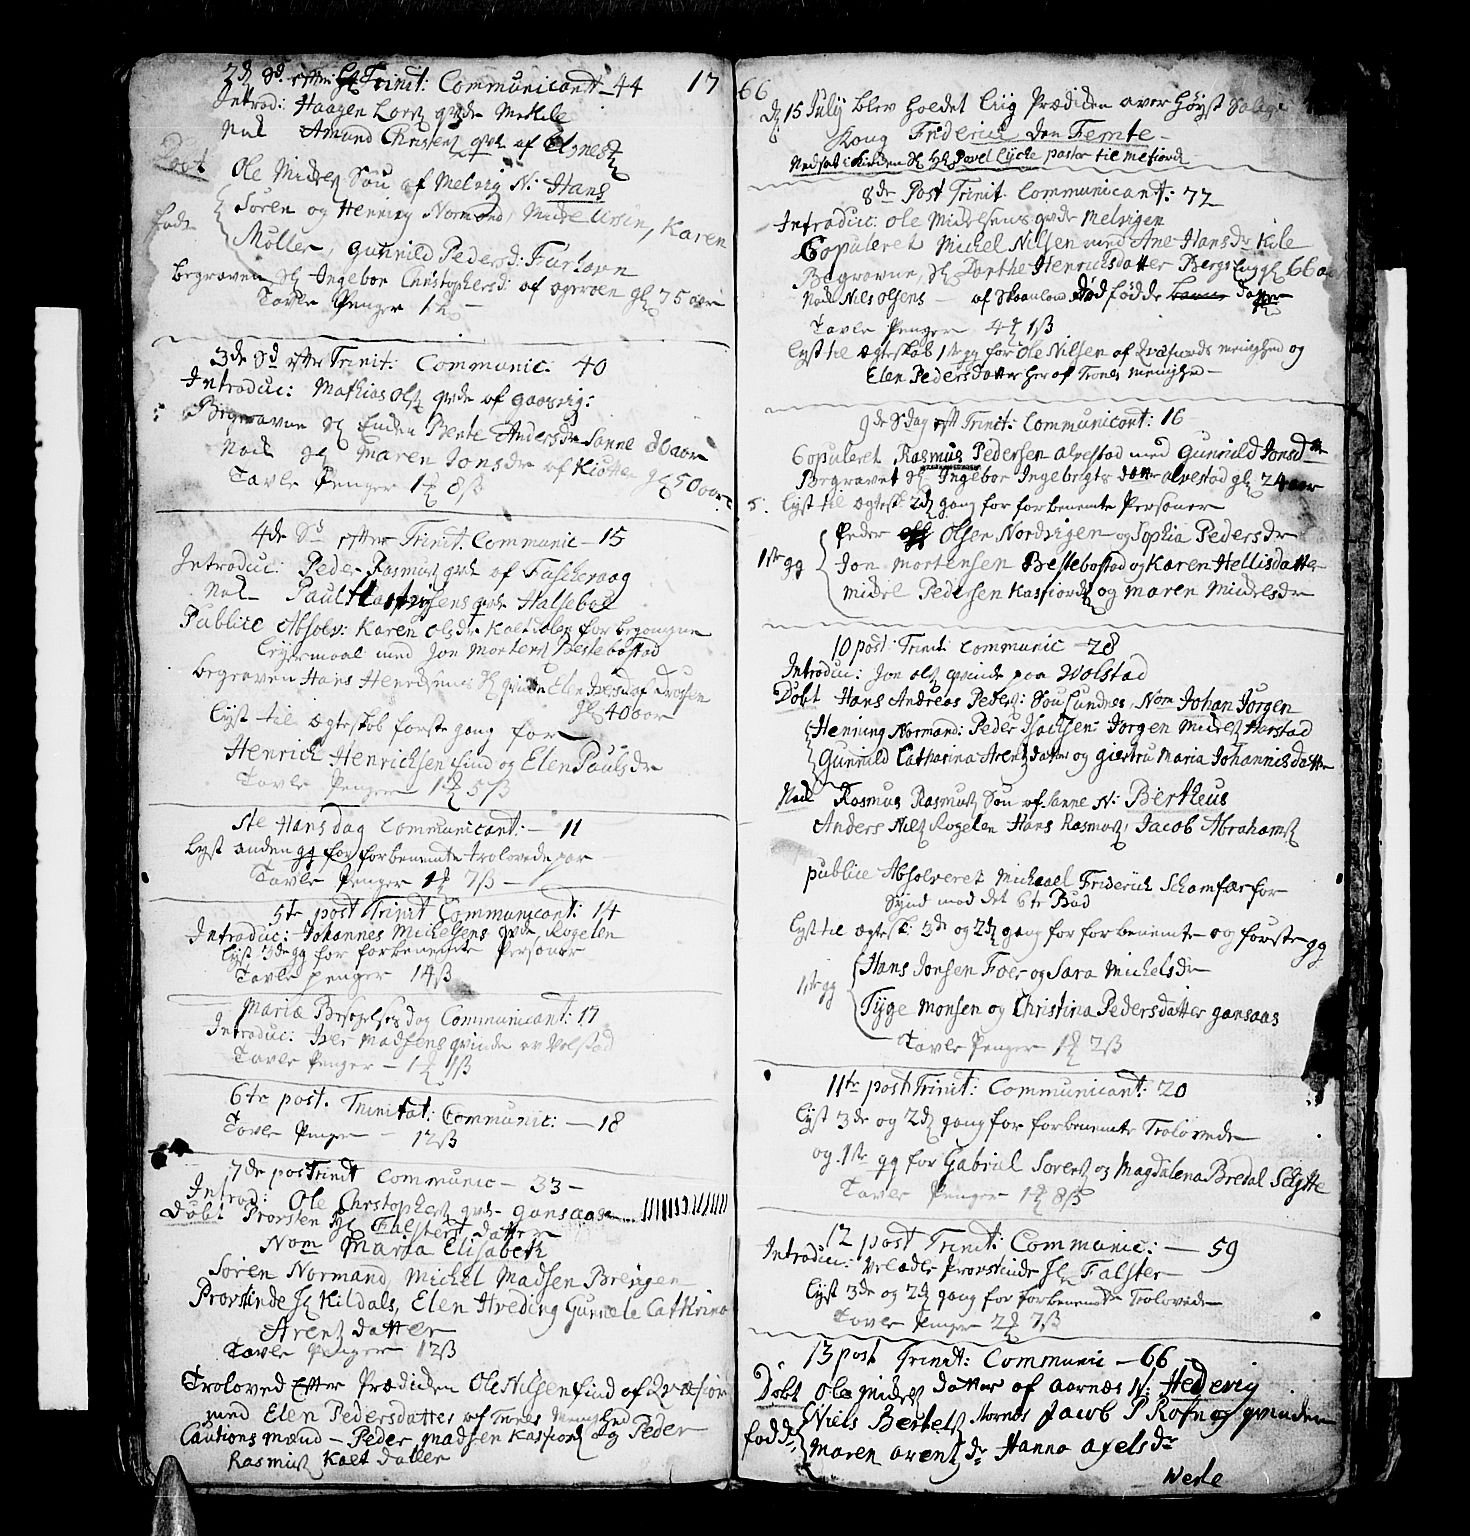 2d Sd. efter Trinit: Communicant 44 17
Introd: Haagen Lors qvde Mekile
Nok Amund Christens qvde af
Døbt Ole Michels Søn af Melvig N: Hans
fadr Søren og Henning Normand, Michel Ursin, Karen
Møller, Gunnild Pedersd: Furhavn
begraven Sl Ingebor Christophersd: af gl 75 aar
Tavle Penger
3de Sd efter Trinit: Communic: 40
Introduc: Mathias Ols qvde af gaasvig:
Begravne Sl Enchen Bente Andersdr Sanne 86 aar
Nock Sl Maren Jonsdr af gl 50 aar
Tavle Penger 1 8 ß
4de Sd efter Trinit. Communic - 15
Introduc: Peder Rasmus qvde af Faschevaag
Nok Paul qvde Halseboe
Publice Absolv: Karen Olsdr Kaeldalen for begangne
Leyermaal med Jon Mortens Bestebostad
begraven Hans Henricsens Sl qvinde Elen Iversd af
gl 40 aar
Lyst til ægteskab første gang for
Henrich Henrichsen find og Elen Paulsdr
Tavle Penger 1 5 ß
Ste Hans dag Communicant: - 11
Lyst anden gg for forbenemte trolovede par
Tavle Penger 1 7 ß -
5te post Trinit Communicant: 14
Introduc: Johannes Michelsens qvde Rogelen
Lyst 3de gg for forbenemte Personer
Tavle penger 14 ß
Mariæ Besøgelses dag Communicant: 17
Introduc: Iver Madsens qvinde av Volstad
Tavle Penger - 1 1 ß
6te post. Trinitat: Communic: - 18
Tavle Penger - 12 ß
7de post Trinit Communic - 33 -
Introd: Ole Christophers qvde - gansaas
Døbt Provsten Hr Falsters datter
Nom Maria Elisabeth
Søren Normand, Michel Madsen Brengen
Provstinde Sl Hildals, Elen Hveding Gunnele Cathrina
Arents datter
Tavle Penger 12 ß
Troloved Efter Prædichen Ole Nilsen find af
med Elen Pedersdatter af Tranes Menighed
Cautions mænd - Peder Madsen Kasfiord og Peder
Rasmus Kaet daller
66
d 15 July blev holdet Liig Prædicken over Høyst Salige
Kong Friderich den Femte -
Nedsat i Kircken Sl Hr Povel Lycke pastor til Mefiord
8de Post Trinit Communicant: 72
Introduc: Ole Michelsens qvde Melvigen
Copuleret Michel Nilsen med Ane Hansdr Kile
Begravne, Sl Dorthe Henrichsdatter Bergs Eng gl 66 aar
Nock Nils Olsens - af Skaanland dødfødde
Tavle Penger 4 1 ß
Lyst til ægteskab 1te gg for Ole Nilsen af menighed og
Elen Pedersdatter her af Tranes menighed -
9de Sdag eft Trinit: Communicant: 16
Copuleret Rasmus Pedersen alvestad med Gunnild Jonsdtr
Begravet Sl Ingebor Ingebrigts datter alvestad gl 24 aar
5. Lyst til ægtesk 2d gang for forbenemte Personer
1te gg Peder Olsen Nordvigen og Sophia Pedersdr
Jon Mortensen Bestebostad og Karen Hellisdatter
Michel Pedersen Kasfiord og Maren Michelsdr
10 post: Trinit: Communic - 28
Introduc: Jon Ols qvinde paa Wolstad
Døbt Hans Andreas Peders: Søn Sundnes, Nom Johan Jørgen
Henning Normand: Peder Isachsen: Jørgen Michels Harstad
Gunnild Catharina Arents datter og Giertru Maria Johannisdatter
Nock Rasmus Rasmus Søn af Sanne N: Bertheus
Anders Nils Rogelen Hans Rasmus, Jacob Abrahams
publice Absolveret Michael Friderich Schomfær for
Synd mod det 6te Bud
Lyst til ægtesk: 3de og 2d gang for forbenemte og første gg
1te gg Hans Jonsen Foer og Sara Michelsdr
Tyge Monsen og Christina Pedersdatter gansaas
Tavle Penger 1 2 ß
11te post Trinit: Communicant: 20
Lyst 3de og 2d gang for forbenemte Trolovede
og 1te gg for Gabriel Sorens og Magdalena Bredal Schytte
Tavle Penger 1 8 ß
12 post Trinit: Communic: - 59
Introduc: Velædle Provstinde Sl Falster
Lyst 3de og 2d gang for forbenemte Trolovede
Tavle Penger 2 7 ß
13 post Trinit: Communic - 66
Døbt Ole Michels datter af aarnæs N: Hedevig
fadde Niels Bertels Hornes Jacob P Rotnes qvinden
Maren arents dr Hanna axelsdr